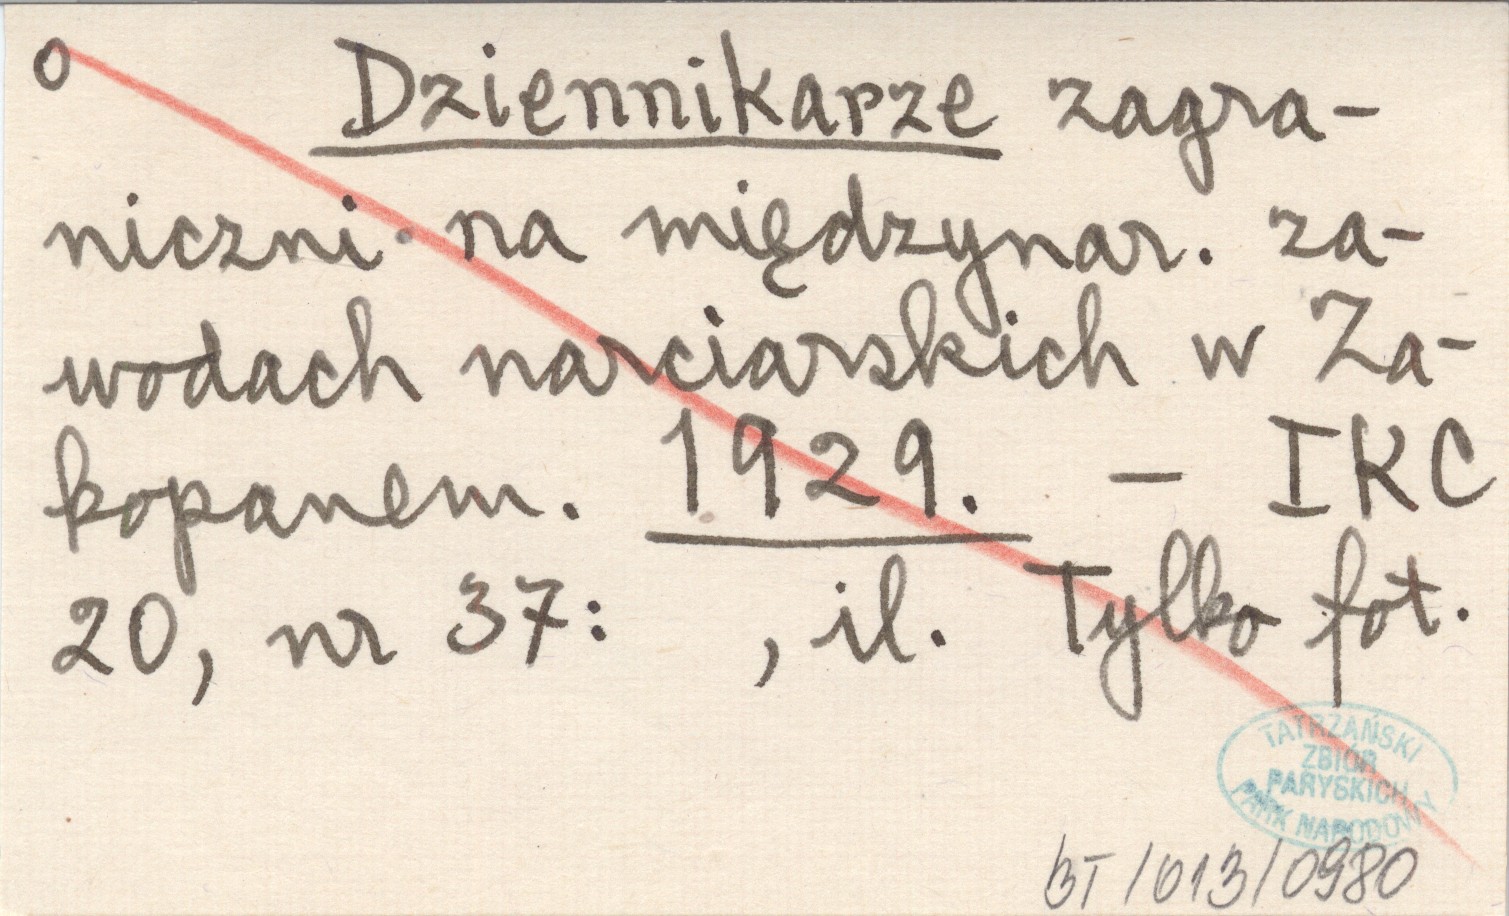 o Dziennikarze zagra-
niczni na międzynar. za-
wodach narciarskich w Za-
kopanem. 1929. — IKC
20, nr 37: , il. Tylko fot.
TATRZAŃSKI
ZBIÓR
PARYSKICH
PARK NARODOWY
BT/013/0980